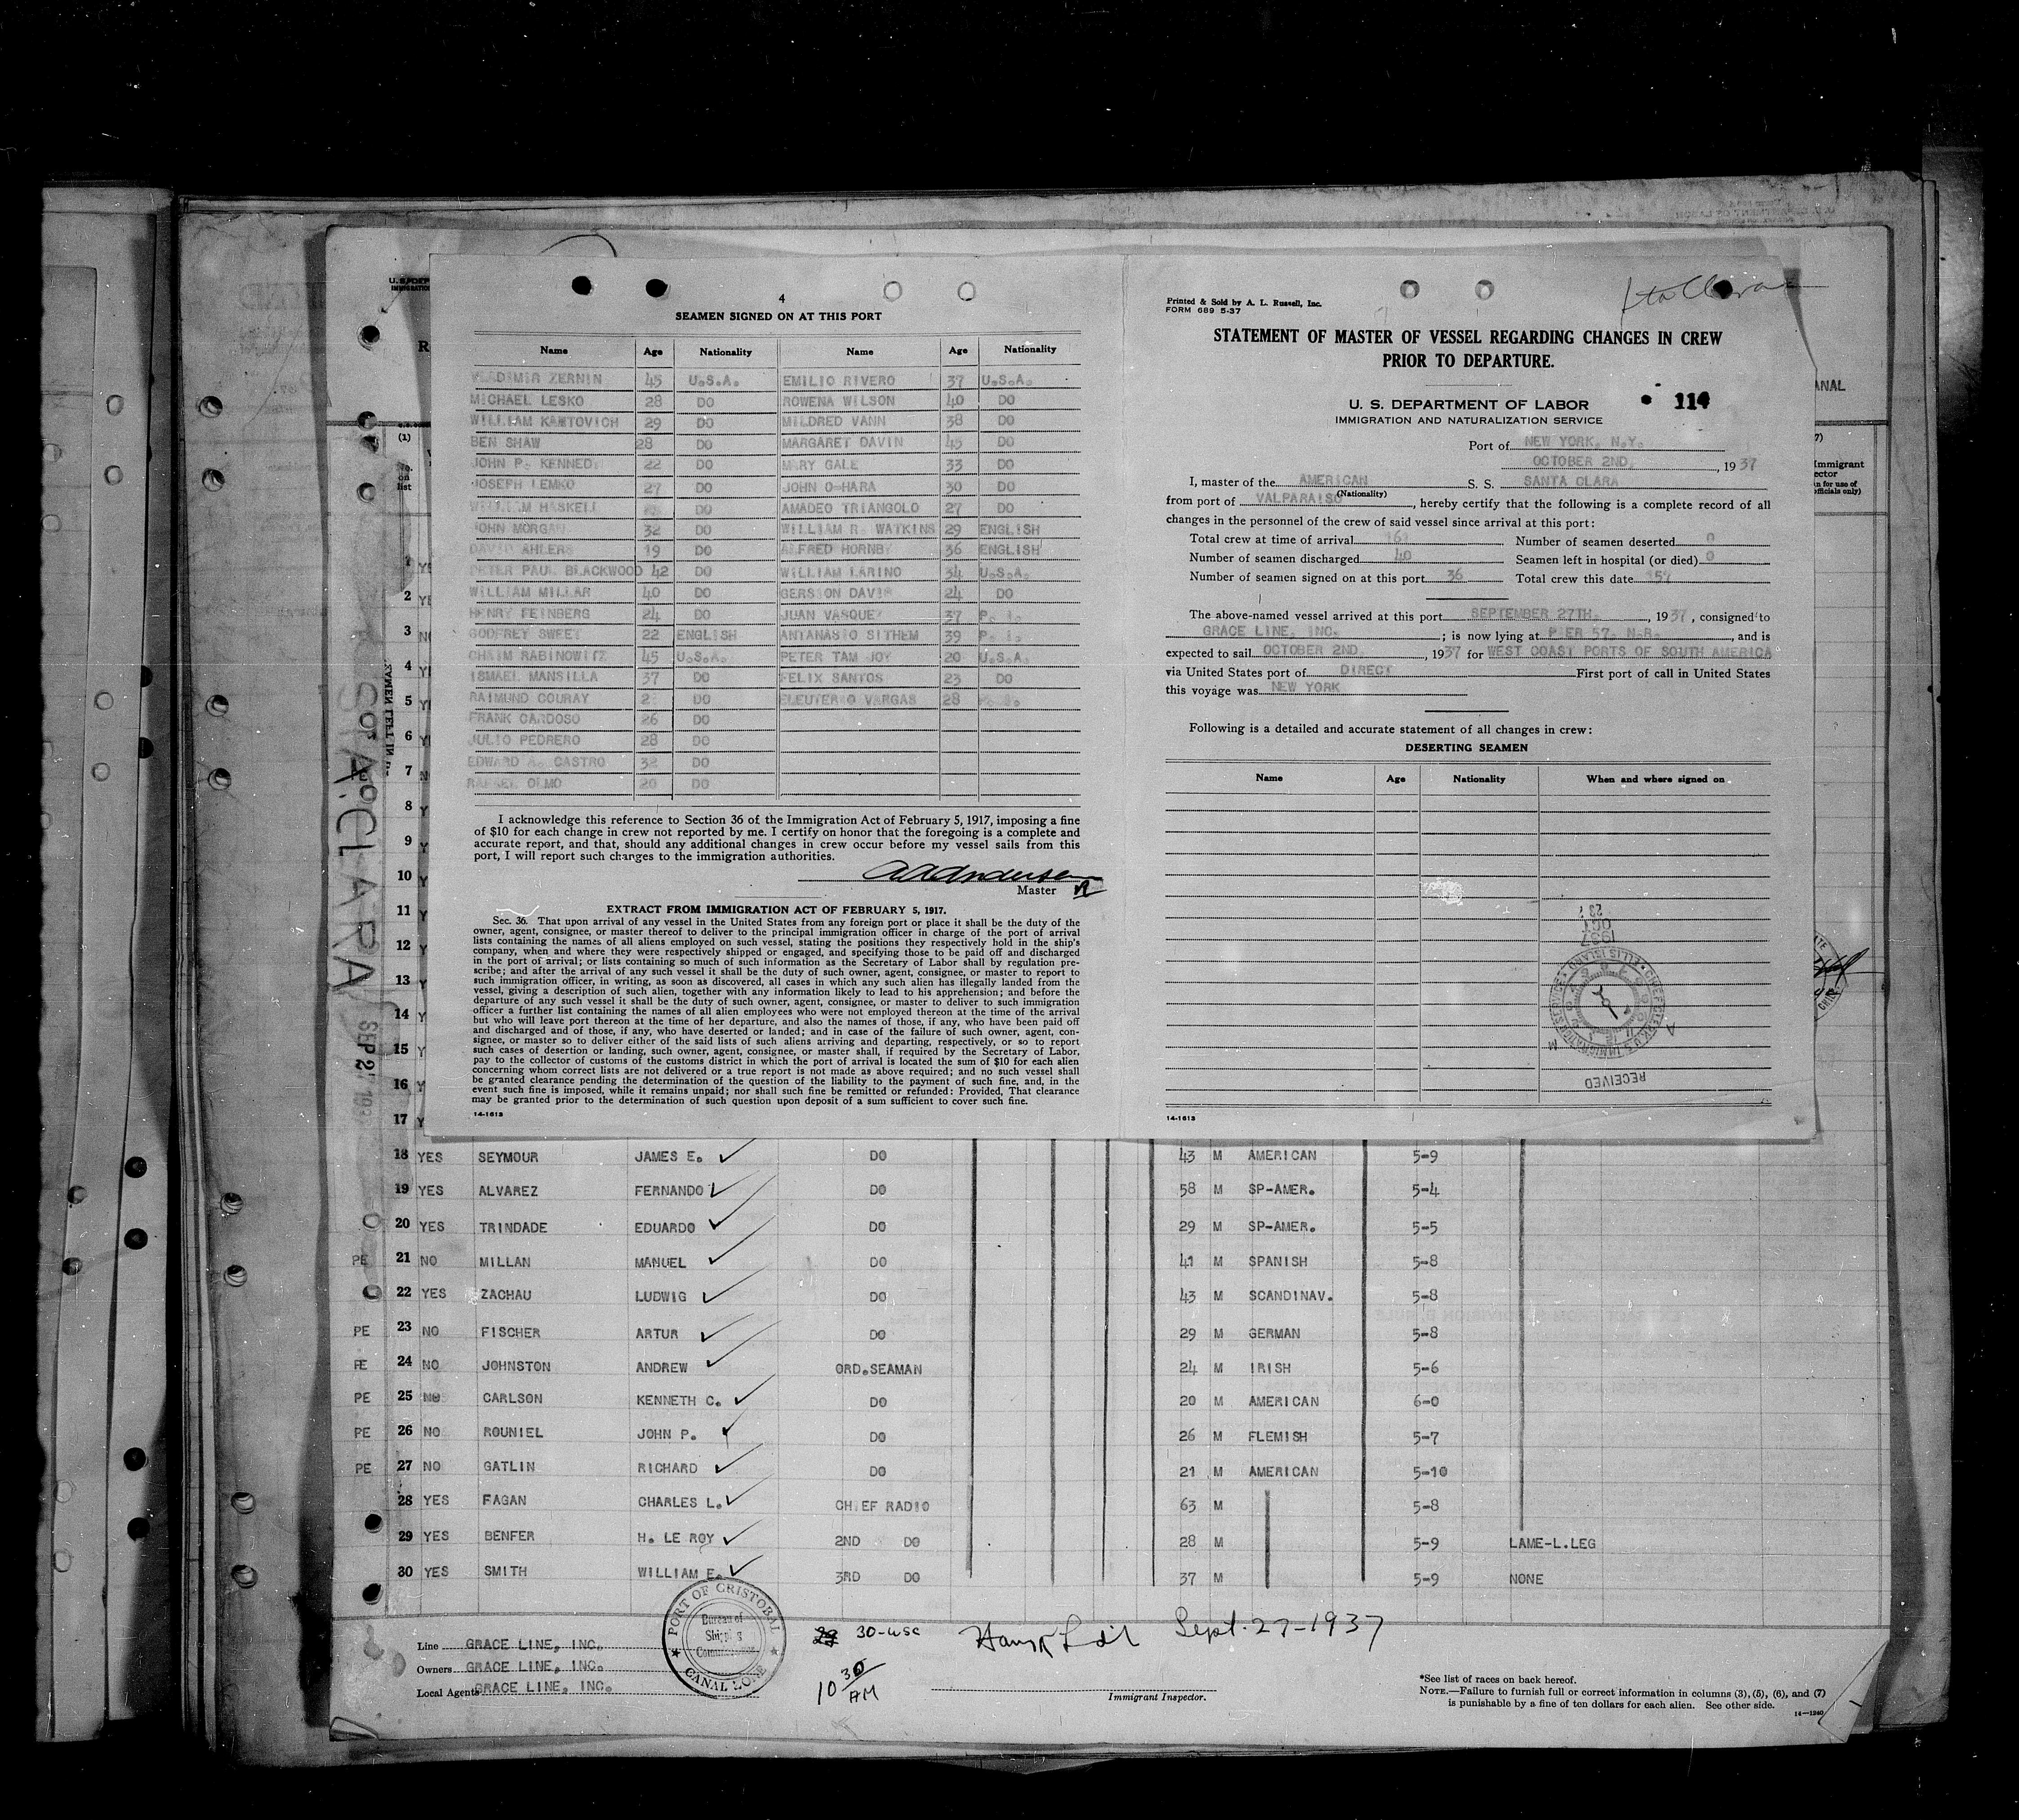 4
SEAMEN SIGNED ON AT THIS PORT
Name Age Nationality Name Age Nationality
VLADIMIR ZERNIN 45 U.S.A. EMILIO RIVERO 37 U.S.A.
MICHAEL LESKO 28 DO ROWENA WILSON 40 DO
WILLIAM KANTOVICH 29 DO MILDRED VANN 38 DO
BEN SHAW 28 DO MARGARET DAVIN 45 DO
JOHN P. KENNEDY 22 DO MARY GALE 33 DO
JOSEPH LEMKO 27 DO JOHN O-HARA 30 DO
WILLIAM HASKELL DO AMADEO TRIANGOLO 27 DO
JOHN MORGAN 32 DO WILLIAM R. WATKINS 29 ENGLISH
DAVID AHLERS 19 DO ALFRED HORNBY 36 ENGLISH
PETER PAUL BLACKWOOD 42 DO WILLIAM LARINO 34 U.S.A.
WILLIAM MILLAR 40 DO GERSION DAVIS 24 DO
HENRY FEINBERG 24 DO JUAN VASQUEZ 37 P. I.
GODFREY SWEET 22 ENGLISH ANTANASIO SITHEM 39 P. I.
CHAIM RABINOWITZ 45 U.S.A. PETER TAM JOY 20 U.S.A.
ISMAEL MANSILLA 37 DO FELIX SANTOS 23 DO
RAIMUND COURAY DO ELEUTERIO VARGAS 28 P. I.
FRANK CARDOSO 26 DO
JULIO PEDRERO 28 DO
EDWARD A. CASTRO 32 DO
RAFAEL OLMO 20 DO
I acknowledge this reference to Section 36 of the Immigration Act of February 5, 1917, imposing a fine
of $10 for each change in crew not reported by me. I certify on honor that the foregoing is a complete and
accurate report, and that, should any additional changes in crew occur before my vessel sails from this
port, I will report such changes to the immigration authorities.
Master
EXTRACT FROM IMMIGRATION ACT OF FEBRUARY 5, 1917.
Sec. 36. That upon arrival of any vessel in the United States from any foreign port or place it shall be the duty of the
owner, agent, consignee, or master thereof to deliver to the principal immigration officer in charge of the port of arrival
lists containing the names of all aliens employed on such vessel, stating the positions they respectively hold in the ship's
company, when and where they were respectively shipped or engaged, and specifying those to be paid off and discharged
in the port of arrival; or lists containing so much of such information as the Secretary of Labor shall by regulation pre-
scribe; and after the arrival of any such vessel it shall be the duty of such owner, agent, consignee, or master to report to
such immigration officer, in writing, as soon as discovered, all cases in which any such alien has illegally landed from the
vessel, giving a description of such alien, together with any information likely to lead to his apprehension; and before the
departure of any such vessel it shall be the duty of such owner, agent, consignee, or master to deliver to such immigration
officer a further list containing the names of all alien employees who were not employed thereon at the time of the arrival
but who will leave port thereon at the time of her departure, and also the names of those, if any, who have been paid off
and discharged and of those, if any, who have deserted or landed; and in case of the failure of such owner, agent, con-
signee, or master so to deliver either of the said lists of such aliens arriving and departing, respectively, or so to report
such cases of desertion or landing, such owner, agent, consignee, or master shall, if required by the Secretary of Labor,
pay to the collector of customs of the customs district in which the port of arrival is located the sum of $10 for each alien
concerning whom correct lists are not delivered or a true report is not made as above required; and no such vessel shall
be granted clearance pending the determination of the question of the liability to the payment of such fine, and, in the
event such fine is imposed, while it remains unpaid; nor shall such fine be remitted or refunded: Provided, That clearance
may be granted prior to the determination of such question upon deposit of a sum sufficient to cover such fine.
14-1613
Printed & Sold by A. L. Russell, Inc.
FORM 689 5-37
STATEMENT OF MASTER OF VESSEL REGARDING CHANGES IN CREW
PRIOR TO DEPARTURE.
U. S. DEPARTMENT OF LABOR
114
IMMIGRATION AND NATURALIZATION SERVICE
Port of NEW YORK, N.Y.
OCTOBER 2ND, 1937
I, master of the AMERICAN S. S. SANTA CLARA
(Nationality)
from port of VALPARAISO, hereby certify that the following is a complete record of all
changes in the personnel of the crew of said vessel since arrival at this port:
Total crew at time of arrival Number of seamen deserted 0
Number of seamen discharged 40 Seamen left in hospital (or died) 0
Number of seamen signed on at this port 36 Total crew this date
The above-named vessel arrived at this port SEPTEMBER 27TH, 1937, consigned to
GRACE LINE, INC. ; is now lying at PIER 57, N.R., and is
expected to sail OCTOBER 2ND, 1937 for WEST COAST PORTS OF SOUTH AMERICA
via United States port of DIRECT First port of call in United States
this voyage was NEW YORK
Following is a detailed and accurate statement of all changes in crew:
DESERTING SEAMEN
Name Age Nationality When and where signed on
RECEIVED
1937 OCT
14-1613
STA. CLARA
SEP 2
18 YES SEYMOUR JAMES E. DO 43 M AMERICAN 5-9
19 YES ALVAREZ FERNANDO DO 58 M SP-AMER. 5-4
20 YES TRINDADE EDUARDO DO 29 M SP-AMER. 5-5
PE 21 NO MILLAN MANUEL DO 41 M SPANISH 5-8
22 YES ZACHAU LUDWIG DO 43 M SCANDINAV. 5-8
PE 23 NO FISCHER ARTUR DO 29 M GERMAN 5-8
PE 24 NO JOHNSTON ANDREW ORD.SEAMAN 24 M IRISH 5-6
PE 25 NO CARLSON KENNETH C. DO 20 M AMERICAN 6-0
PE 26 NO ROUNIEL JOHN P. DO 26 M FLEMISH 5-7
PE 27 NO GATLIN RICHARD DO 21 M AMERICAN 5-10
28 YES FAGAN CHARLES L. CHIEF RADIO 63 M 5-8
29 YES BENFER H. LE ROY 2ND DO 28 M 5-9 LAME-L.LEG
30 YES SMITH WILLIAM E. 3RD DO 37 M 5-9 NONE
PORT OF CRISTOBAL
Bureau of
Shipping
CANAL ZONE
30-USC
10 30 AM
Sept. 27-1937
Line GRACE LINE, INC.
Owners GRACE LINE, INC.
Local Agents GRACE LINE, INC.
Immigrant Inspector.
*See list of races on back hereof.
NOTE.—Failure to furnish full or correct information in columns (3), (5), (6), and (7)
is punishable by a fine of ten dollars for each alien. See other side.
14—1240